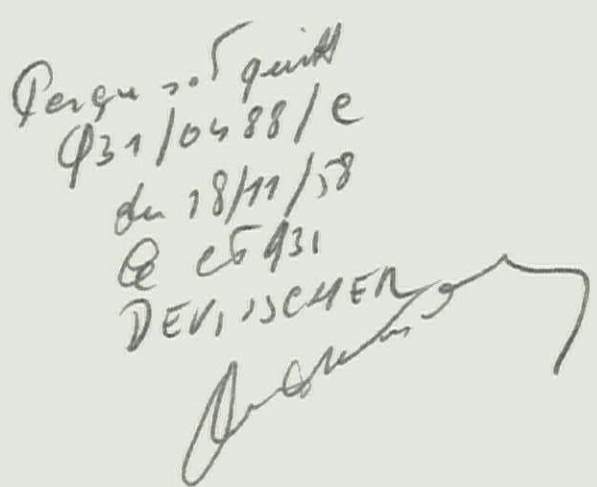 Perçu s.t quitt
Q31/0488/C
du 18/11/58
Ce ct Q31
DEVISSCHER